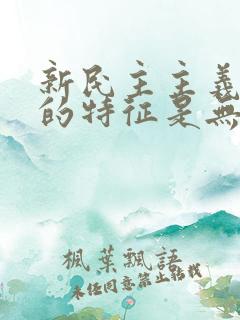 新民主主義
的特征是無
楓葉飄語
未经同意禁止转载